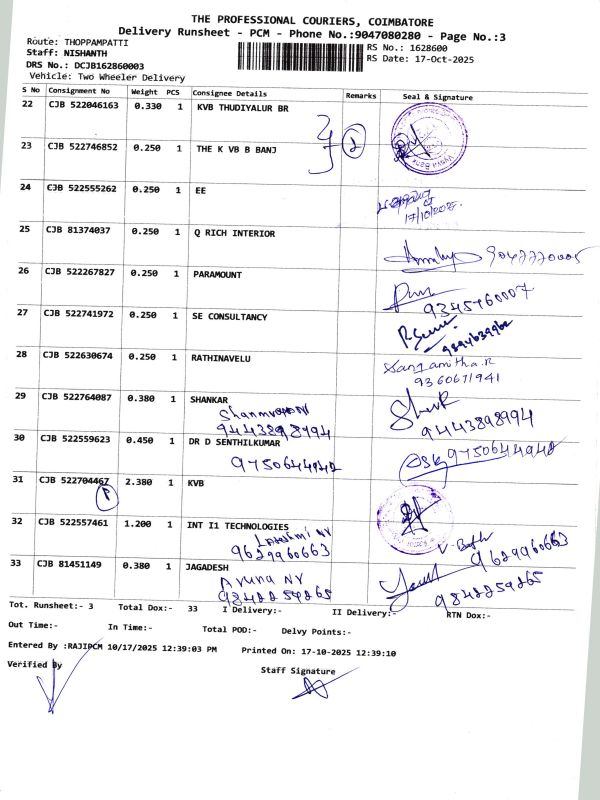 THE PROFESSIONAL COURIERS, COIMBATORE
Delivery Runsheet - PCM - Phone No.:9047080280 - Page No.:3
Route: THOPPAMPATTI
Staff: NISHANTH
DRS No.: DCJB162860003
Vehicle: Two Wheeler Delivery
RS No.: 1628600
RS Date: 17-Oct-2025
S No Consignment No Weight PCS Consignee Details Remarks Seal & Signature
22 CJB 522046163 0.330 1 KVB THUDIYALUR BR
23 CJB 522746852 0.250 1 THE K VB B BANJ 2
24 CJB 522555262 0.250 1 EE
17/10/2025.
25 CJB 81374037 0.250 1 Q RICH INTERIOR
9047770005
26 CJB 522267827 0.250 1 PARAMOUNT
9345760007
27 CJB 522741972 0.250 1 SE CONSULTANCY
28 CJB 522630674 0.250 1 RATHINAVELU
Sangamitha.R
9360671941
29 CJB 522764087 0.380 1 SHANKAR
9443898994 9443898994
30 CJB 522559623 0.450 1 DR D SENTHILKUMAR
9750644942 9750644942
31 CJB 522704467 2.380 1 KVB
P
32 CJB 522557461 1.200 1 INT I1 TECHNOLOGIES
Lakshmi NV
9629960663 9629960663
33 CJB 81451149 0.380 1 JAGADESH
Aruna NV
9842259265 9842259265
Tot. Runsheet:- 3 Total Dox:- 33 I Delivery:- II Delivery:- RTN Dox:-
Out Time:- In Time:- Total POD:- Delvy Points:-
Entered By :RAJIPCM 10/17/2025 12:39:03 PM Printed On: 17-10-2025 12:39:10
Verified By
Staff Signature